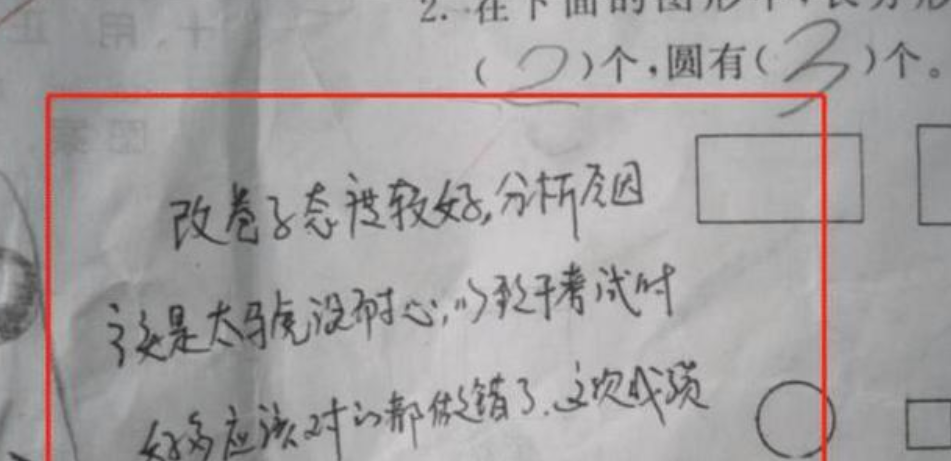 2. 在下面的图形中,长方形
(2)个,圆有(3)个。
改卷子态度较好,分析原因
主要是太马虎没耐心,以致于考试时
好多应该对的都做错了.这次成绩